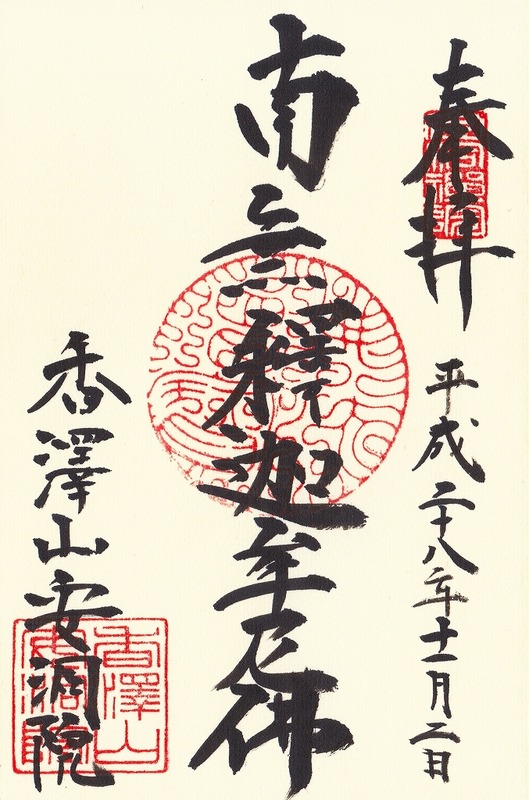 奉拝
平成二十八年十一月二日
南無釋迦牟尼佛
香澤山安洞院
香澤山
安洞院